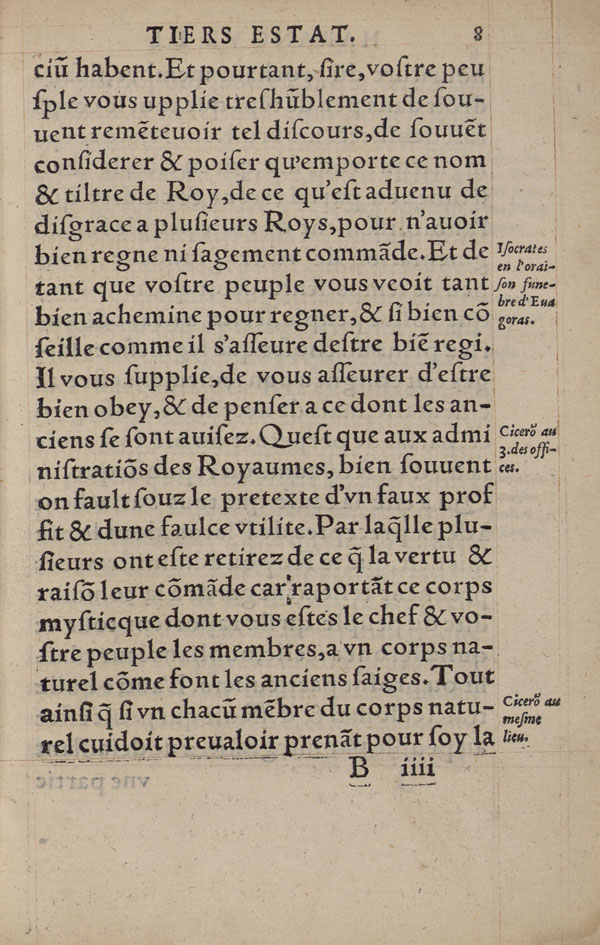 TIERS ESTAT. 8
ciũ habent. Et pourtant, ſire, voſtre peu
ſple vous upplie treſhũblement de ſou-
uent remẽteuoir tel diſcours, de ſouuẽt
conſiderer & poiſer qu'emporte ce nom
& tiltre de Roy, de ce qu'eſt aduenu de
diſgrace a pluſieurs Roys, pour n'auoir
bien regne ni ſagement commãde. Et de
tant que voſtre peuple vous veoit tant
bien achemine pour regner, & ſi bien cõ
ſeille comme il s'aſſeure deſtre biẽ regi.
Il vous ſupplie, de vous aſſeurer d'eſtre
bien obey, & de penſer a ce dont les an-
ciens ſe ſont auiſez. Queſt que aux admi
niſtratiõs des Royaumes, bien ſouuent
on fault ſouz le pretexte d'vn faux prof
fit & dune faulce vtilite. Par laq̃lle plu-
ſieurs ont eſte retirez de ce q̃ la vertu &
raiſõ leur cõmãde car raportãt ce corps
myſticque dont vous eſtes le chef & vo-
ſtre peuple les membres, a vn corps na-
turel cõme font les anciens ſaiges. Tout
ainſi q̃ ſi vn chacũ mẽbre du corps natu-
rel cuidoit preualoir prenãt pour ſoy la
B iiii
Iſocrates
en l'orai-
ſon fune-
bre d'Eua
goras.
Cicerõ au
3. des offi-
ces.
Cicerõ au
meſme
lieu.